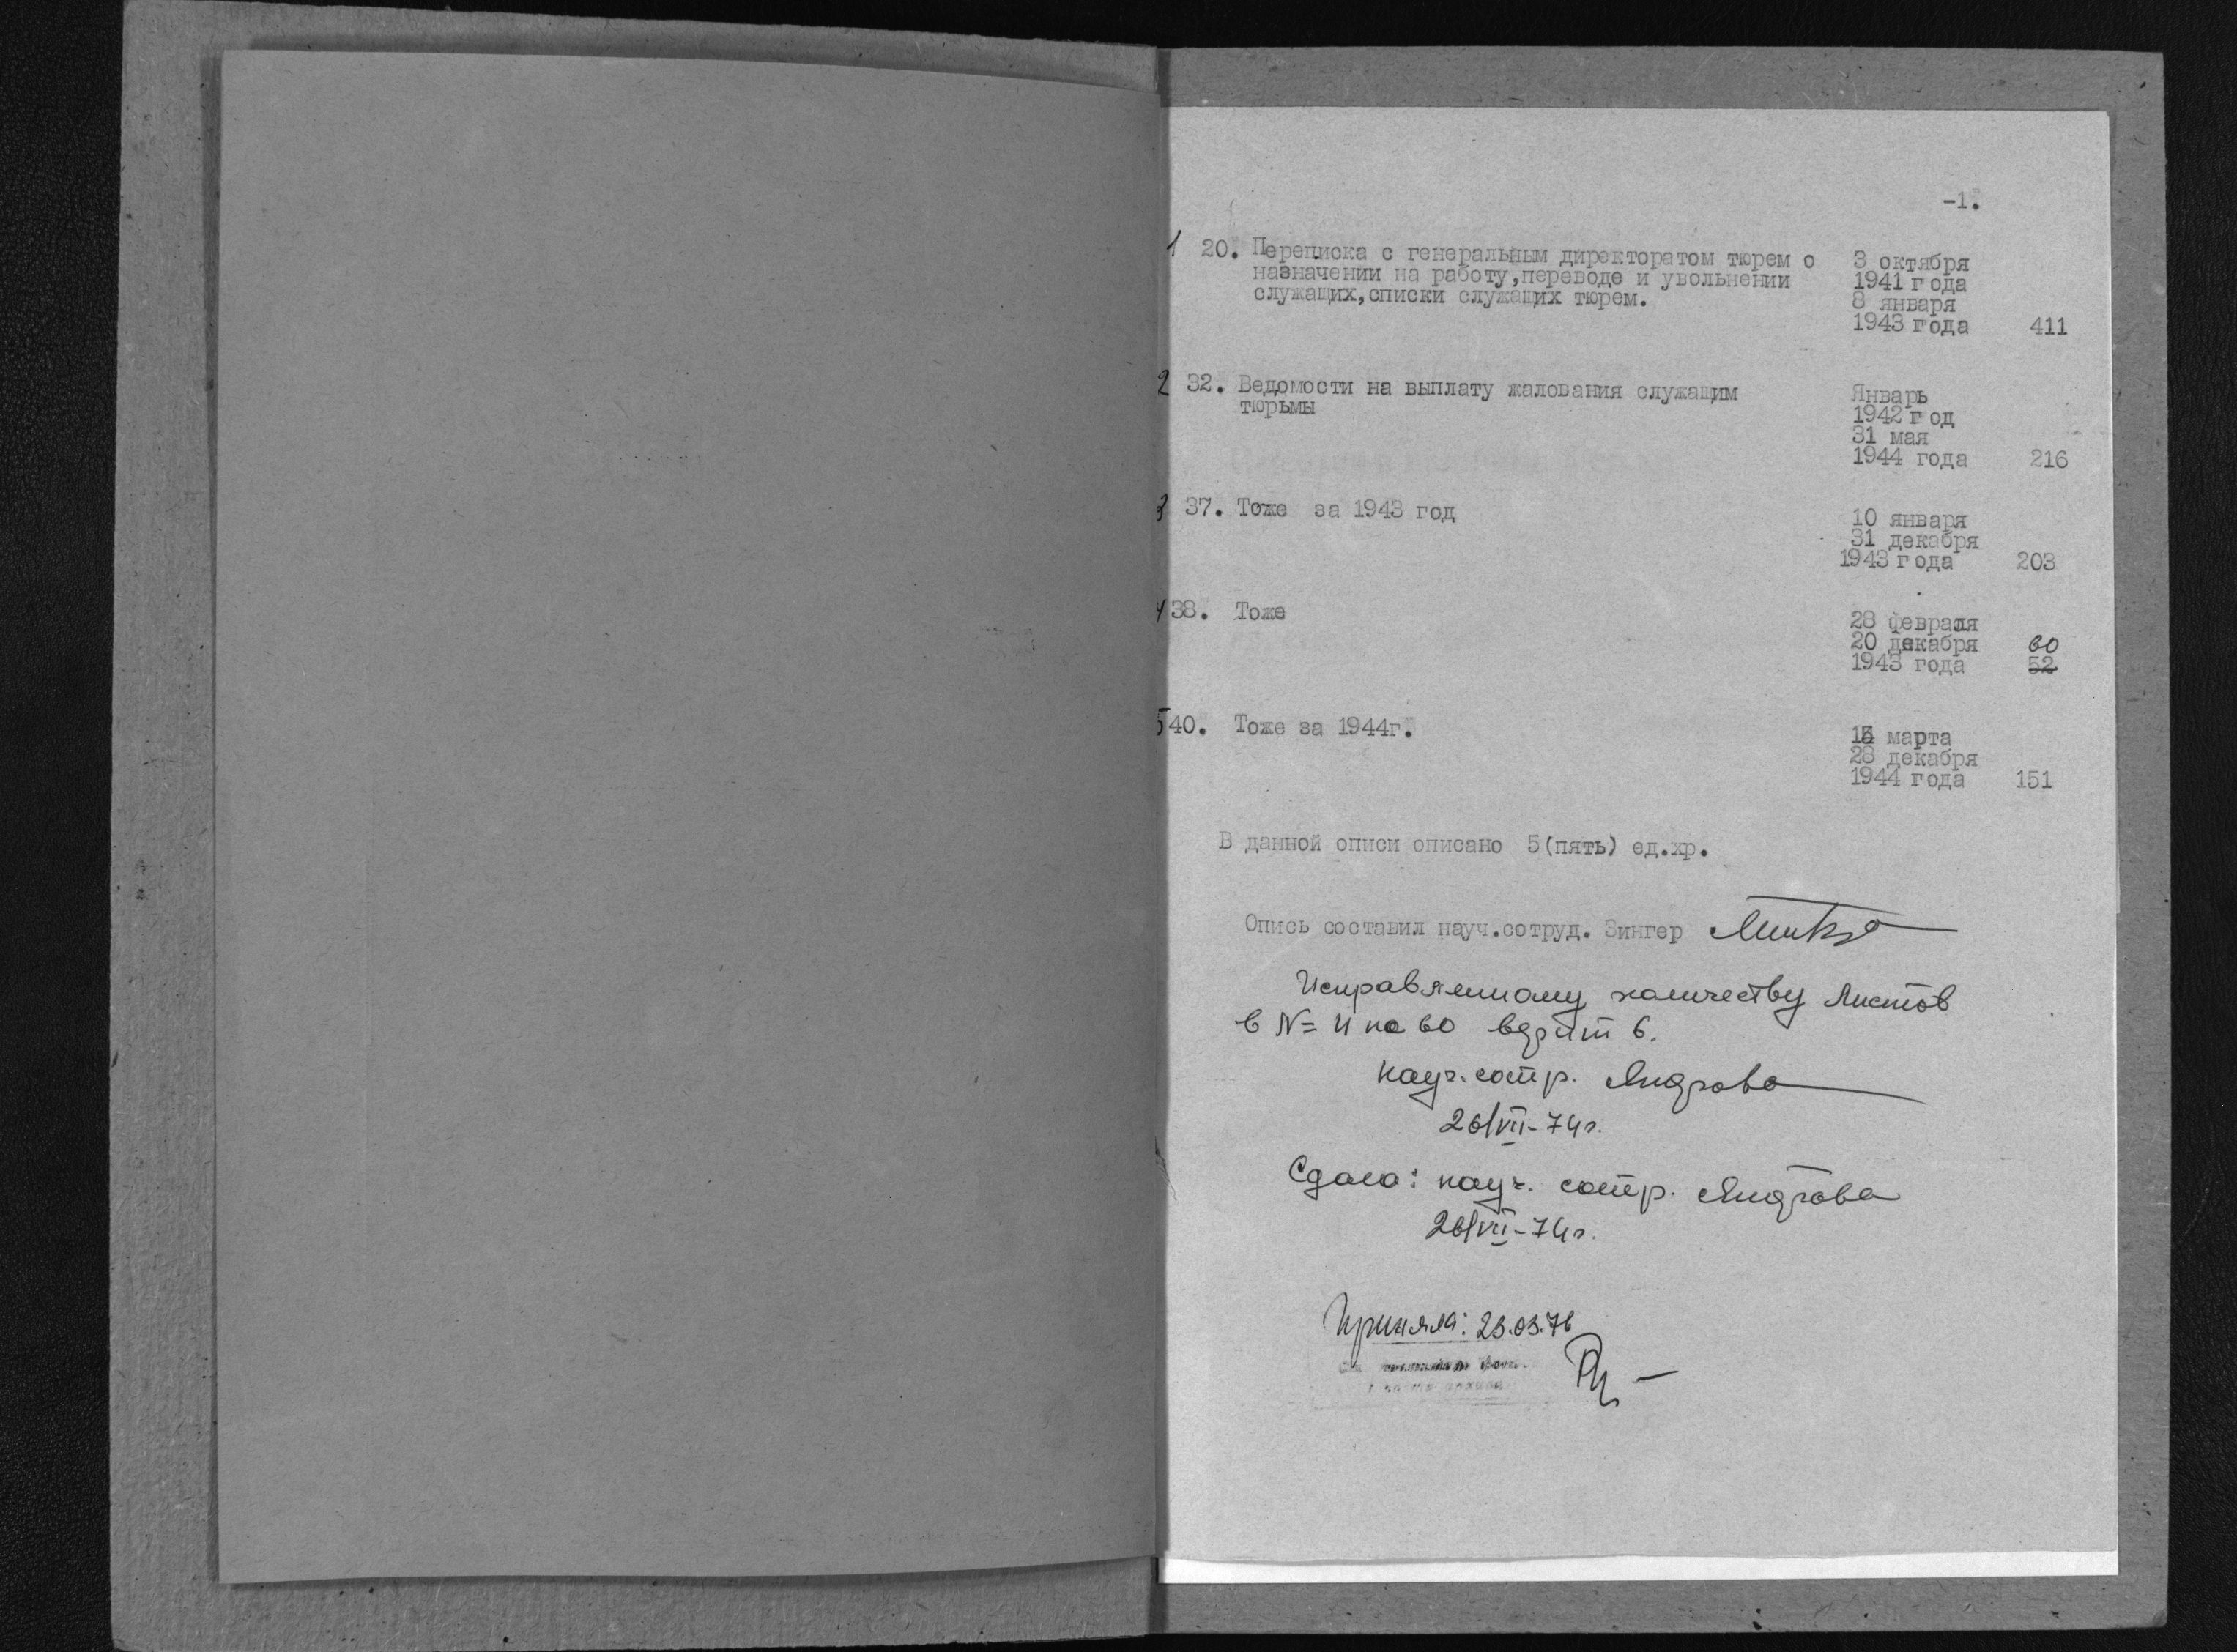 -1.
1 20. Переписка с генеральным директоратом тюрем о
назначении на работу,переводе и увольнении
служащих,списки служащих тюрем.
3 октября
1941 года
8 января
1943 года 411
2 32. Ведомости на выплату жалования служащим
тюрьмы
Январь
1942 год
31 мая
1944 года 216
3 37. Тоже за 1943 год
10 января
31 декабря
1943 года 203
4 38. Тоже
28 февраля
20 декабря 60
1943 года 52
5 40. Тоже за 1944г.
марта
28 декабря
1944 года 151
В данной описи описано 5(пять) ед.хр.
Опись составил науч.сотруд. Зингер
Исправленному количеству листов
в № 4 на 60 верить.
науч. сотр.
26/VII-74г.
Сдала: науч. сотр.
26/VII-74г.
Приняла: 23.03.76